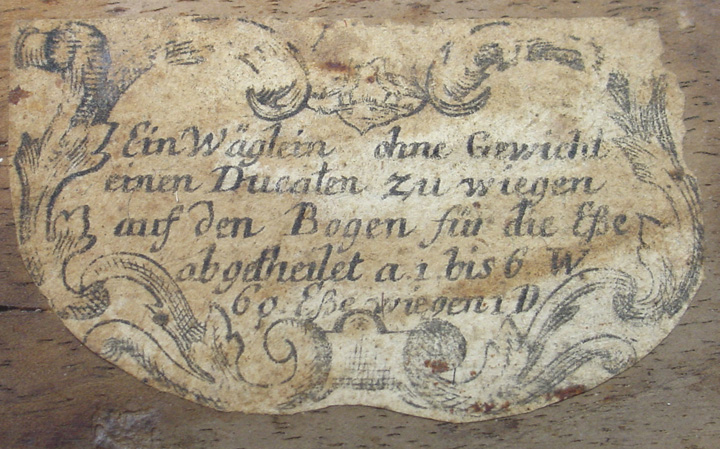 Ein Wäglein ohne Gewicht
einen Ducaten zu wiegen
auf den Bogen für die Eße
abgetheilet a 1 bis 6 W
60 Eße wiegen 1 D